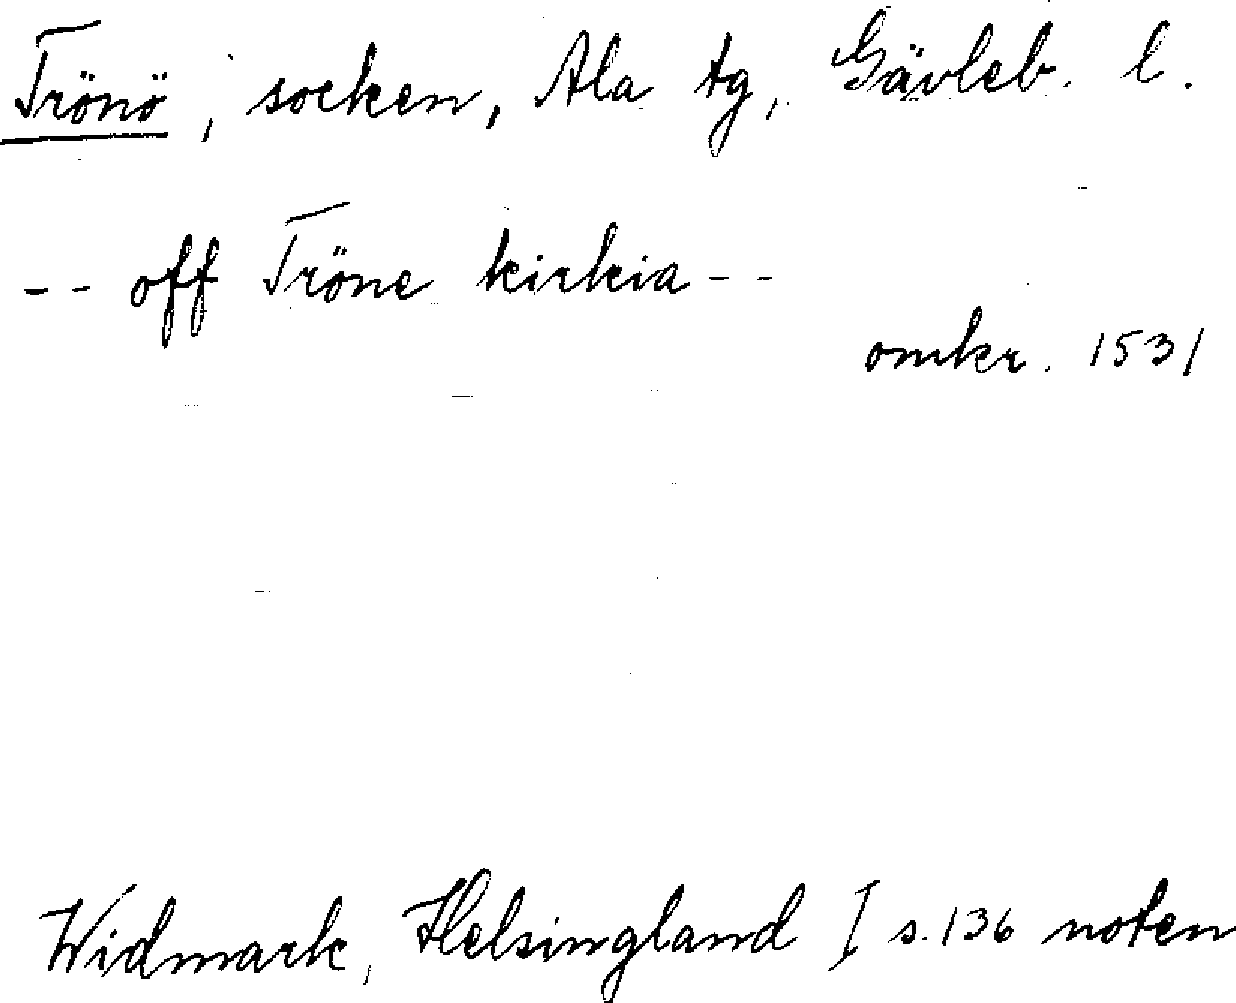 Trönö, socken, Ala tg, Gävleb. l.
-- off Tröne kirkia --
omkr. 1531
Widmark, Helsingland I s. 136 noten